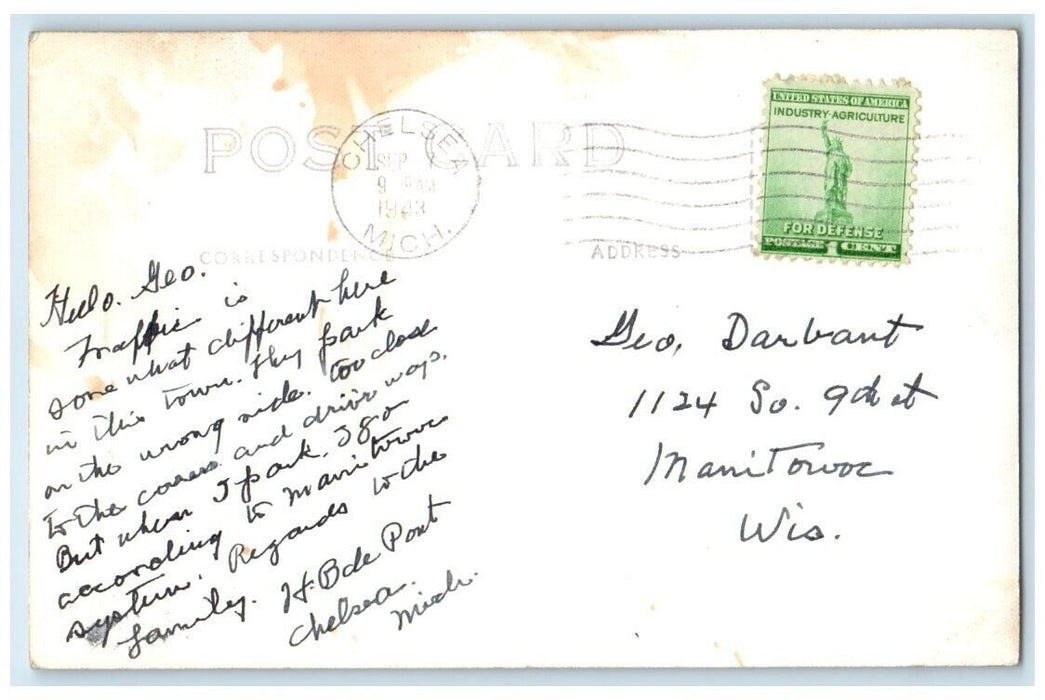 POST CARD
CHELSEA
SEP 7
9 AM
1943
MICH.
UNITED STATES OF AMERICA
INDUSTRY·AGRICULTURE
FOR DEFENSE
POSTAGE 1 CENT
CORRESPONDENCE
ADDRESS
Hello. Geo.
Traffic is
somewhat different here
in this town. They park
on the wrong side. too close
to the corners and drive ways.
But when I park. I go
according to Manitowoc
system. Regards to the
family. H. B de Pont
Chelsea.
Mich.
Geo. Darbant
1124 So. 9th st
Manitowoc
Wis.